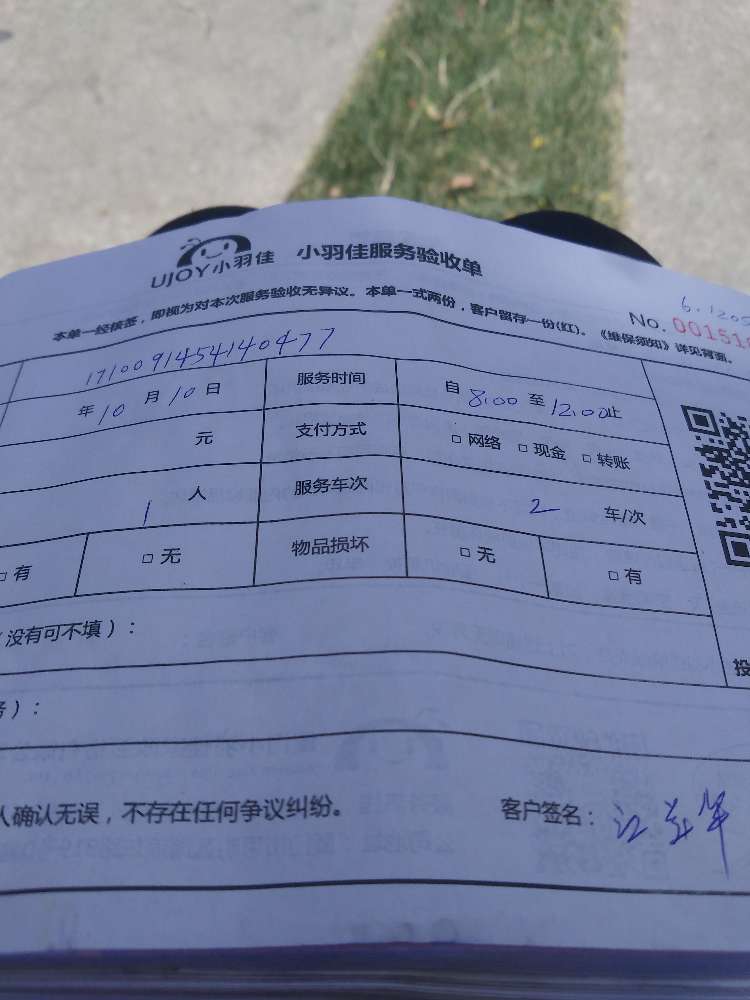 UJOY小羽佳 小羽佳服务验收单
本单一经核签，即视为对本次服务验收无异议。本单一式两份，客户留存一份(红)。《维保须知》详见背面。
No. 001518
1710091454140477
年10月10日 服务时间 自8:00至12:00止
元 支付方式 □网络 □现金 □转账
1人 服务车次 2 车/次
□有 □无 物品损坏 □无 □有
（没有可不填）：
）：
人确认无误，不存在任何争议纠纷。 客户签名：
投